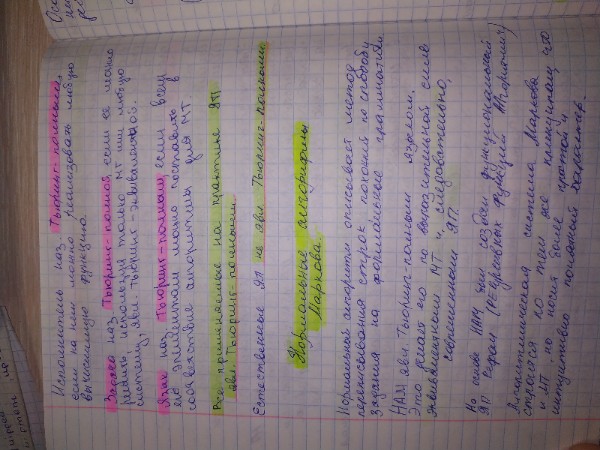 Исполнитель наз. Тьюринг-полным,
если на нём можно реализовать любую
вычислимую функцию.
Задача наз. Тьюринг-полной, если её можно
решить, используя только МТ или любую
систему, явл. Тьюринг-эквивалентной.
Язык наз. Тьюринг-полным, если всем
его элементам можно поставить в
соответствие алгоритмы для МТ.
Все применяемые на практике ЯП
явл. Тьюринг-полными.
Естественные ЯП не явл. Тьюринг-полными.
Нормальные алгорифмы
Маркова.
Нормальный алгоритм описывает метод
переписывания строк похожий по способу
задания на формальные грамматики.
НАМ явл. Тьюринг-полным языком.
Это делает его по выразительной силе
эквивалентным МТ и, следовательно,
современным ЯП.
На основе НАМ был создан функциональный
ЯП Рефал (РЕкурсивных Функций АЛгоритмич.)
Алгоритмическая система Маркова
строится по тем же принципам, что
и МТ, но носит более простой и
интуитивно понятный характер.